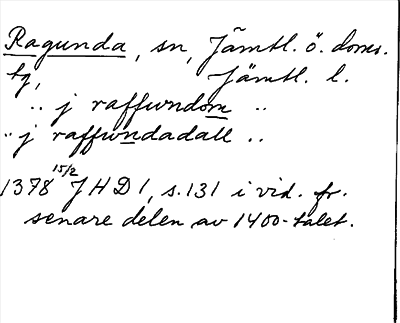 Ragunda, sn, Jämtl. ö. doms.
tg, Jämtl. l.
.. j raffwndom ..
.. j raffwndadall ..
1378 15/2 J H D 1, s. 131 i vid. fr.
senare delen av 1400-talet.